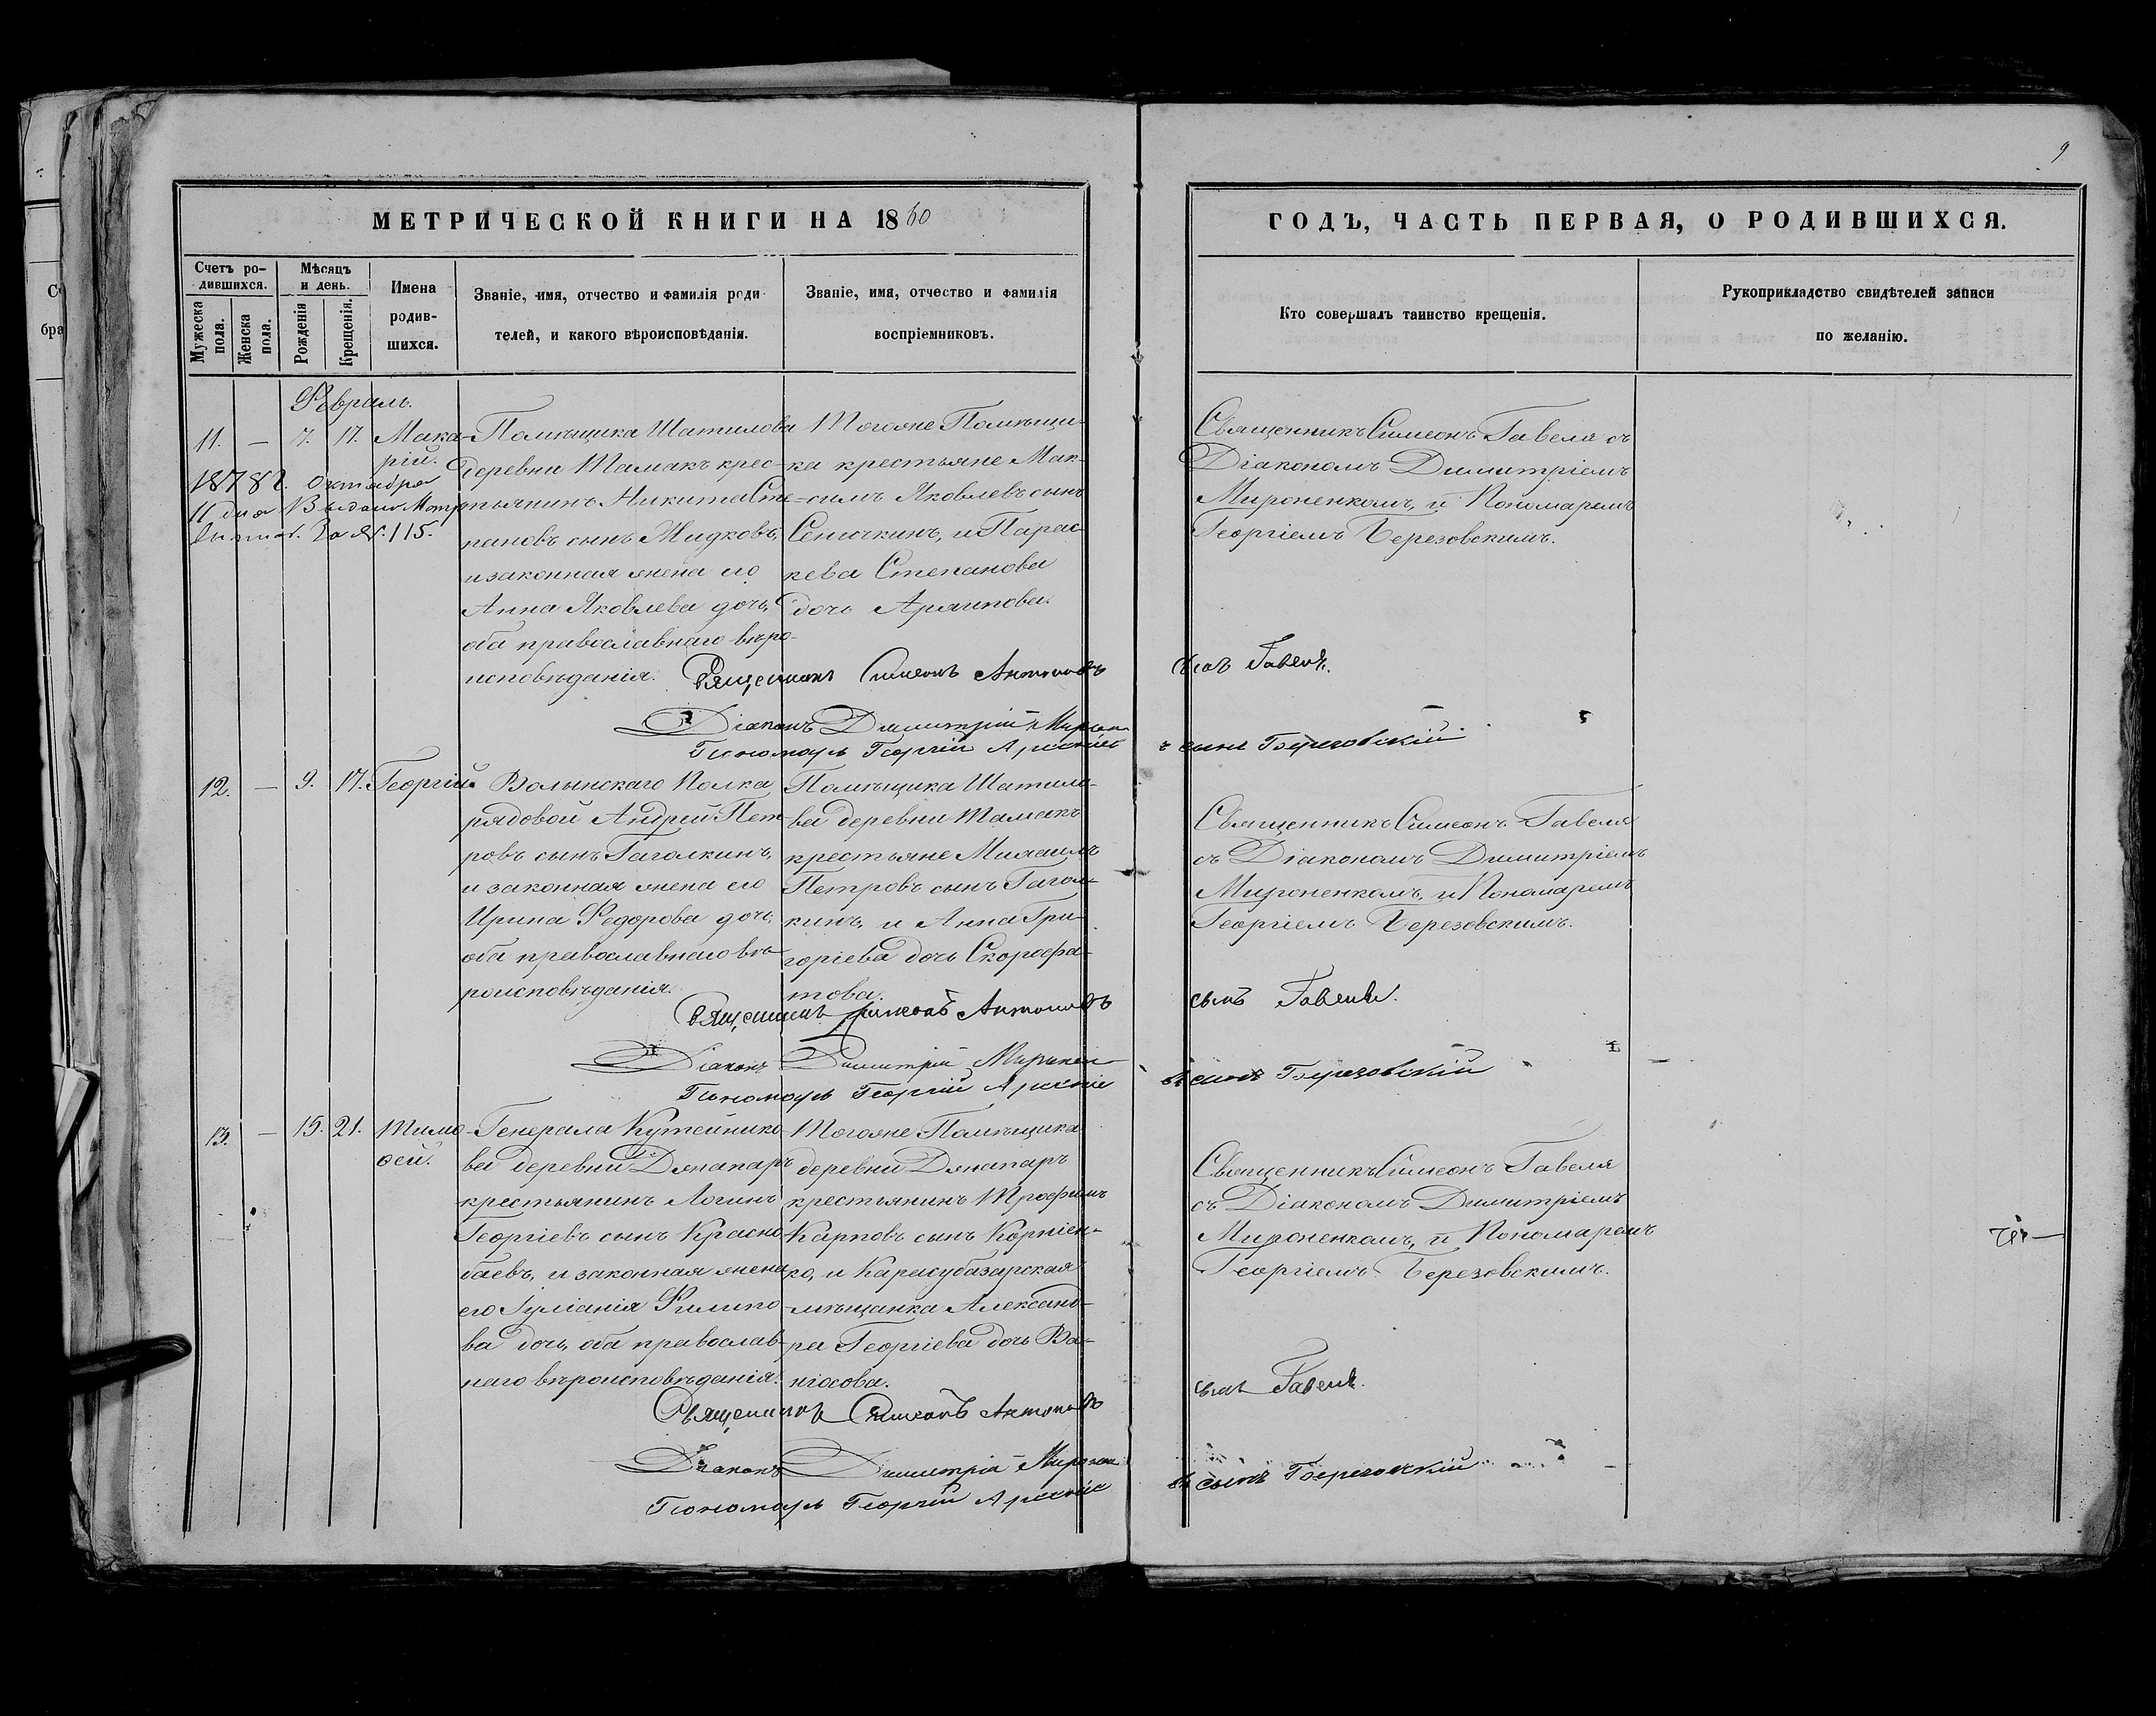 9
МЕТРИЧЕСКОЙ КНИГИ НА 1860
ГОДЪ, ЧАСТЬ ПЕРВАЯ, О РОДИВШИХСЯ.
Счетъ ро-
дившихся.
Мужеска пола.
Женска пола.
Мѣсяцъ
и день.
Рожденія
Крещенія.
Имена
родив-
шихся.
Званіе, имя, отчество и фамилія роди
телей, и какого вѣроисповѣданія.
Званіе, имя, отчество и фамилія
воспріемниковъ.
Кто совершалъ таинство крещенія.
Рукоприкладство свидѣтелей записи
по желанію.
Февраль.
11. — 7. 17. Мака-
рій.
октября
11 дня Выдано Метр
За №. 115.
Помѣщика Шатилова
деревни Тамакъ крес-
тьянинъ Никита Сте=
пановъ сынъ Жидковъ,
и законная жена его
Анна Яковлева дочь,
оба православнаго вѣро-
исповѣданія.
Тогоже Помѣщи-
ка крестьяне Мак-
симъ Яковлевъ сынъ
Сеничкинъ, и Парас-
кева Степанова
дочь Архипова.
Священникъ Симеонъ Гавеля съ
Діакономъ Димитріемъ
Мироненкомъ, и Пономаремъ
Георгіемъ Березовскимъ.
Священникъ Симеонъ Антоновъ сынъ Гавеля.
Діаконъ Димитрій Миронен
Пономарь Георгій Арсеніевъ сынъ Березовскій
12. — 9. 17. Георгій.
Волынскаго Полка
рядовой Андрей Пет-
ровъ сынъ Гаголкинъ,
и законная жена его
Ирина Федорова дочь,
оба православнаго вѣ-
роисповѣданія.
Помѣщика Шатило-
ва деревни Тамакъ
крестьяне Михаилъ
Петровъ сынъ Гагол-
кинъ, и Анна Гри-
горіева дочь Скорофа-
това.
Священникъ Симеонъ Гавеля
съ Діакономъ Димитріемъ
Мироненкомъ, и Пономаремъ
Георгіемъ Березовскимъ.
Священникъ Симеонъ Антоновъ сынъ Гавеля.
Діаконъ Димитрій Миронен
Пономарь Георгій Арсеніевъ сынъ Березовскій
13. — 15. 21. Тимо
ѳей.
Генерала Кутейнико-
ва деревни Джанапаръ
крестьянинъ Логинъ
Георгіевъ сынъ Красно
баевъ, и законная жена
его Іуліанія Филипо-
ва дочь, оба православ-
наго вѣроисповѣданія.
Тогоже Помѣщика
деревни Джанапаръ
крестьянинъ Трофимъ
Карповъ сынъ Корніен-
ко, и Карасубазарская
мѣщанка Александ-
ра Георгіева дочь Ва-
ніосова.
Священникъ Симеонъ Гавеля
съ Діакономъ Димитріемъ
Мироненкомъ, и Пономаремъ
Георгіемъ Березовскимъ.
Священникъ Симеонъ Антоновъ сынъ Гавеля.
Діаконъ Димитрій Миронен
Пономарь Георгій Арсеніевъ сынъ Березовскій